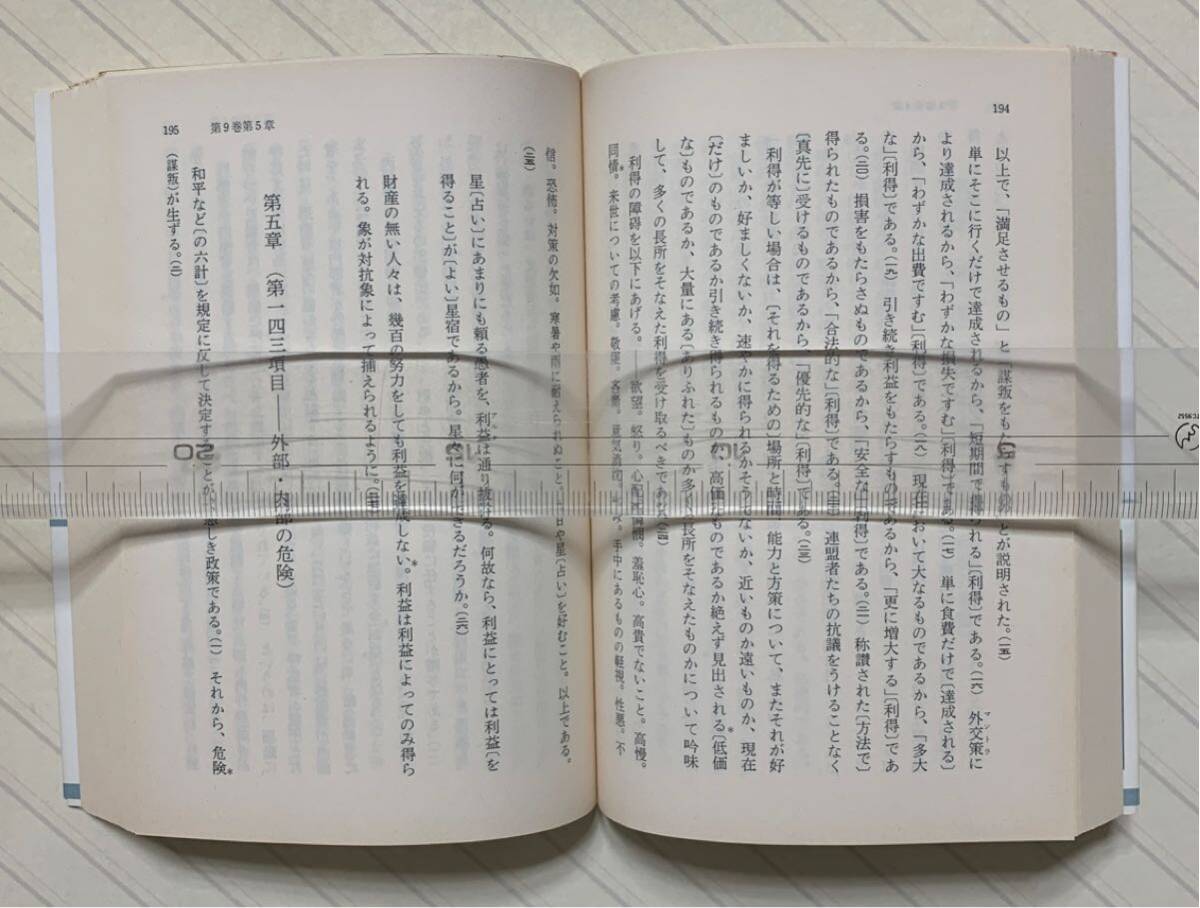 194
以上で、「満足させるもの」と「謀叛をもたらすもの」とが説明された。(一五)
単にそこに行くだけで達成されるから、「短期間で得られる」〔利得〕である。(一六) 外交策に
マントラ
より達成されるから、「わずかな損失ですむ」〔利得〕である。(一七) 単に食費だけで〔達成される〕
から、「わずかな出費ですむ」〔利得〕である。(一八) 現在において大なるものであるから、「多大
な」〔利得〕である。(一九) 引き続き利益をもたらすものであるから、「更に増大する」〔利得〕であ
る。(二〇) 損害をもたらさぬものであるから、「安全な」〔利得〕である。(二一) 称讃された〔方法で〕
得られたものであるから、「合法的な」〔利得〕である。(二二) 連盟者たちの抗議をうけることなく
〔真先に〕受けるものであるから、「優先的な」〔利得〕である。(二三)
利得が等しい場合は、〔それを得るための〕場所と時間、能力と方策について、またそれが好
ましいか、好ましくないか、速やかに得られるかそうでないか、近いものか遠いものか、現在
〔だけ〕のものであるか引き続き得られるものか、高価なものであるか絶えず見出される*〔低価
な〕ものであるか、大量にある〔ありふれた〕ものか多くの長所をそなえたものかについて吟味
して、多くの長所をそなえた利得を受け取るべきである。(二四)
利得の障碍を以下にあげる。——欲望。怒り。心配。 羞恥心。高貴でないこと。高慢。
同情*。来世についての考慮。敬虔。 手中にあるものの軽視。性悪。不
195 第9巻第5章
信。恐怖。対策の欠如。寒暑や雨に耐えられぬこと。 日や星〔占い〕を好むこと。以上である。
(二五)
星〔占い〕にあまりにも頼る愚者を、利益は通り抜ける。何故なら、利益にとっては利益〔を
アルタ
得ること〕が〔よい〕星宿であるから。星々に何ができるだろうか。(二六)
財産の無い人々は、幾百の努力をしても利益を達成しない*。利益は利益によってのみ得ら
れる。象が対抗象によって捕えられるように。(二七)
第五章 (第一四三項目——外部・内部の危険)
和平など〔の六計〕を規定に反して決定することが、悪しき政策である。(一) それから、危険*
(謀叛)が生ずる。(二)
5
10
15
20